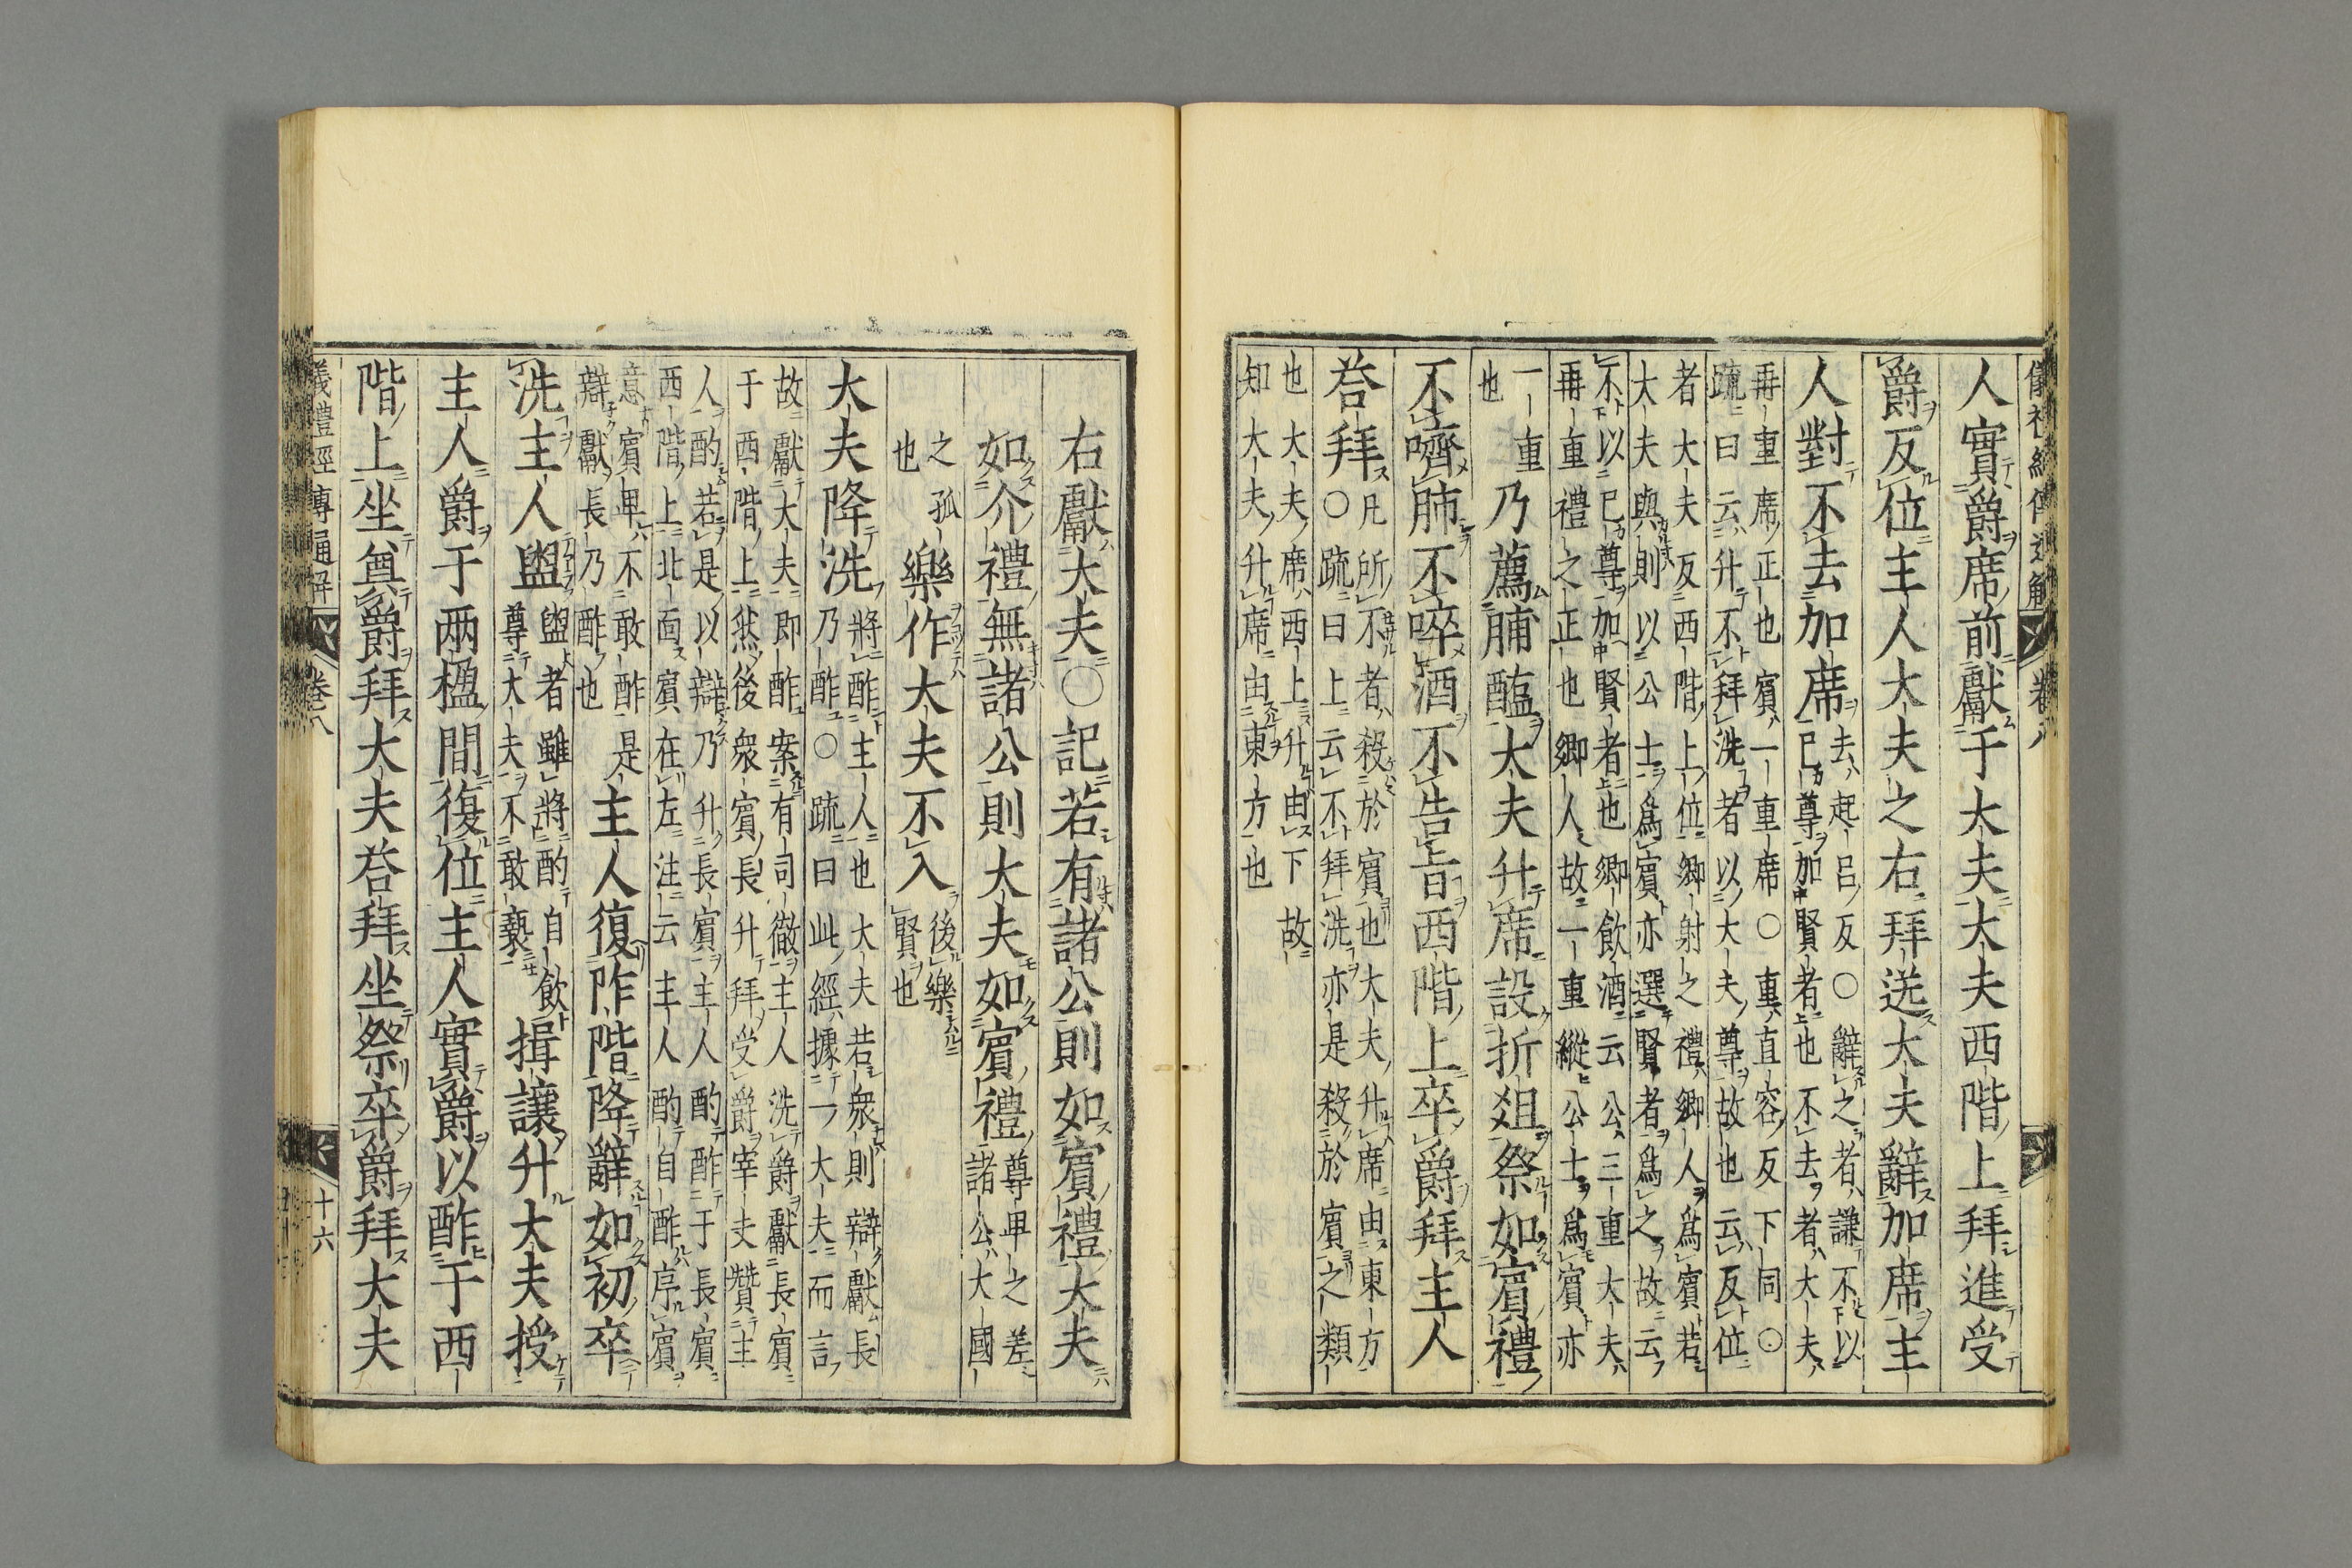 人實爵席前獻于大夫大夫西階上拜進受
爵反位主人大夫之右拜送大夫辭加席主
人對不去加席去起呂反○辭之者謙不以
己尊加賢者也不去者大夫
再重席正也賓一重席○重直容反下同○
疏曰云升不拜洗者以大夫尊故也云反位
者大夫反西階上位鄉射之禮鄉人爲賓若
大夫與則以公士爲賓亦選賢者爲之故云
不以己尊加賢者也鄉飲酒云公三重大夫
再重禮之正也鄉人故一重縱公士爲賓亦
一重
也
乃薦脯醢大夫升席設折俎祭如賓禮
不嚌肺不啐酒不告旨西階上卒爵拜主人
荅拜凡所不者殺於賓也大夫升席由東方
○疏曰上云不拜洗亦是殺於賓之類
也大夫席西上升由下故
知大夫升席由東方也
右獻大夫○記若有諸公則如賓禮大夫
如介禮無諸公則大夫如賓禮尊卑之差
諸公大國
之孤
也
樂作大夫不入後樂
賢也
大夫降洗將酢主人也大夫若衆則辯獻長
乃酢○疏曰此經據一大夫而言
故獻大夫即酢案有司徹主人洗爵獻長賓
于西階上然後衆賓長升拜受爵宰夫贊主
人酌若是以辯乃升長賓主人酌酢于長賓
西階上北面賓在左注云主人酌自酢序賓
意賓卑不敢酢是
辯獻長乃酢也
主人復阼階降辭如初卒
洗主人盥盥者雖將酌自飲
尊大夫不敢褻
揖讓升大夫授
主人爵于兩楹間復位主人實爵以酢于西
階上坐奠爵拜大夫荅拜坐祭卒爵拜大夫
儀禮經傳通解
卷八
十六